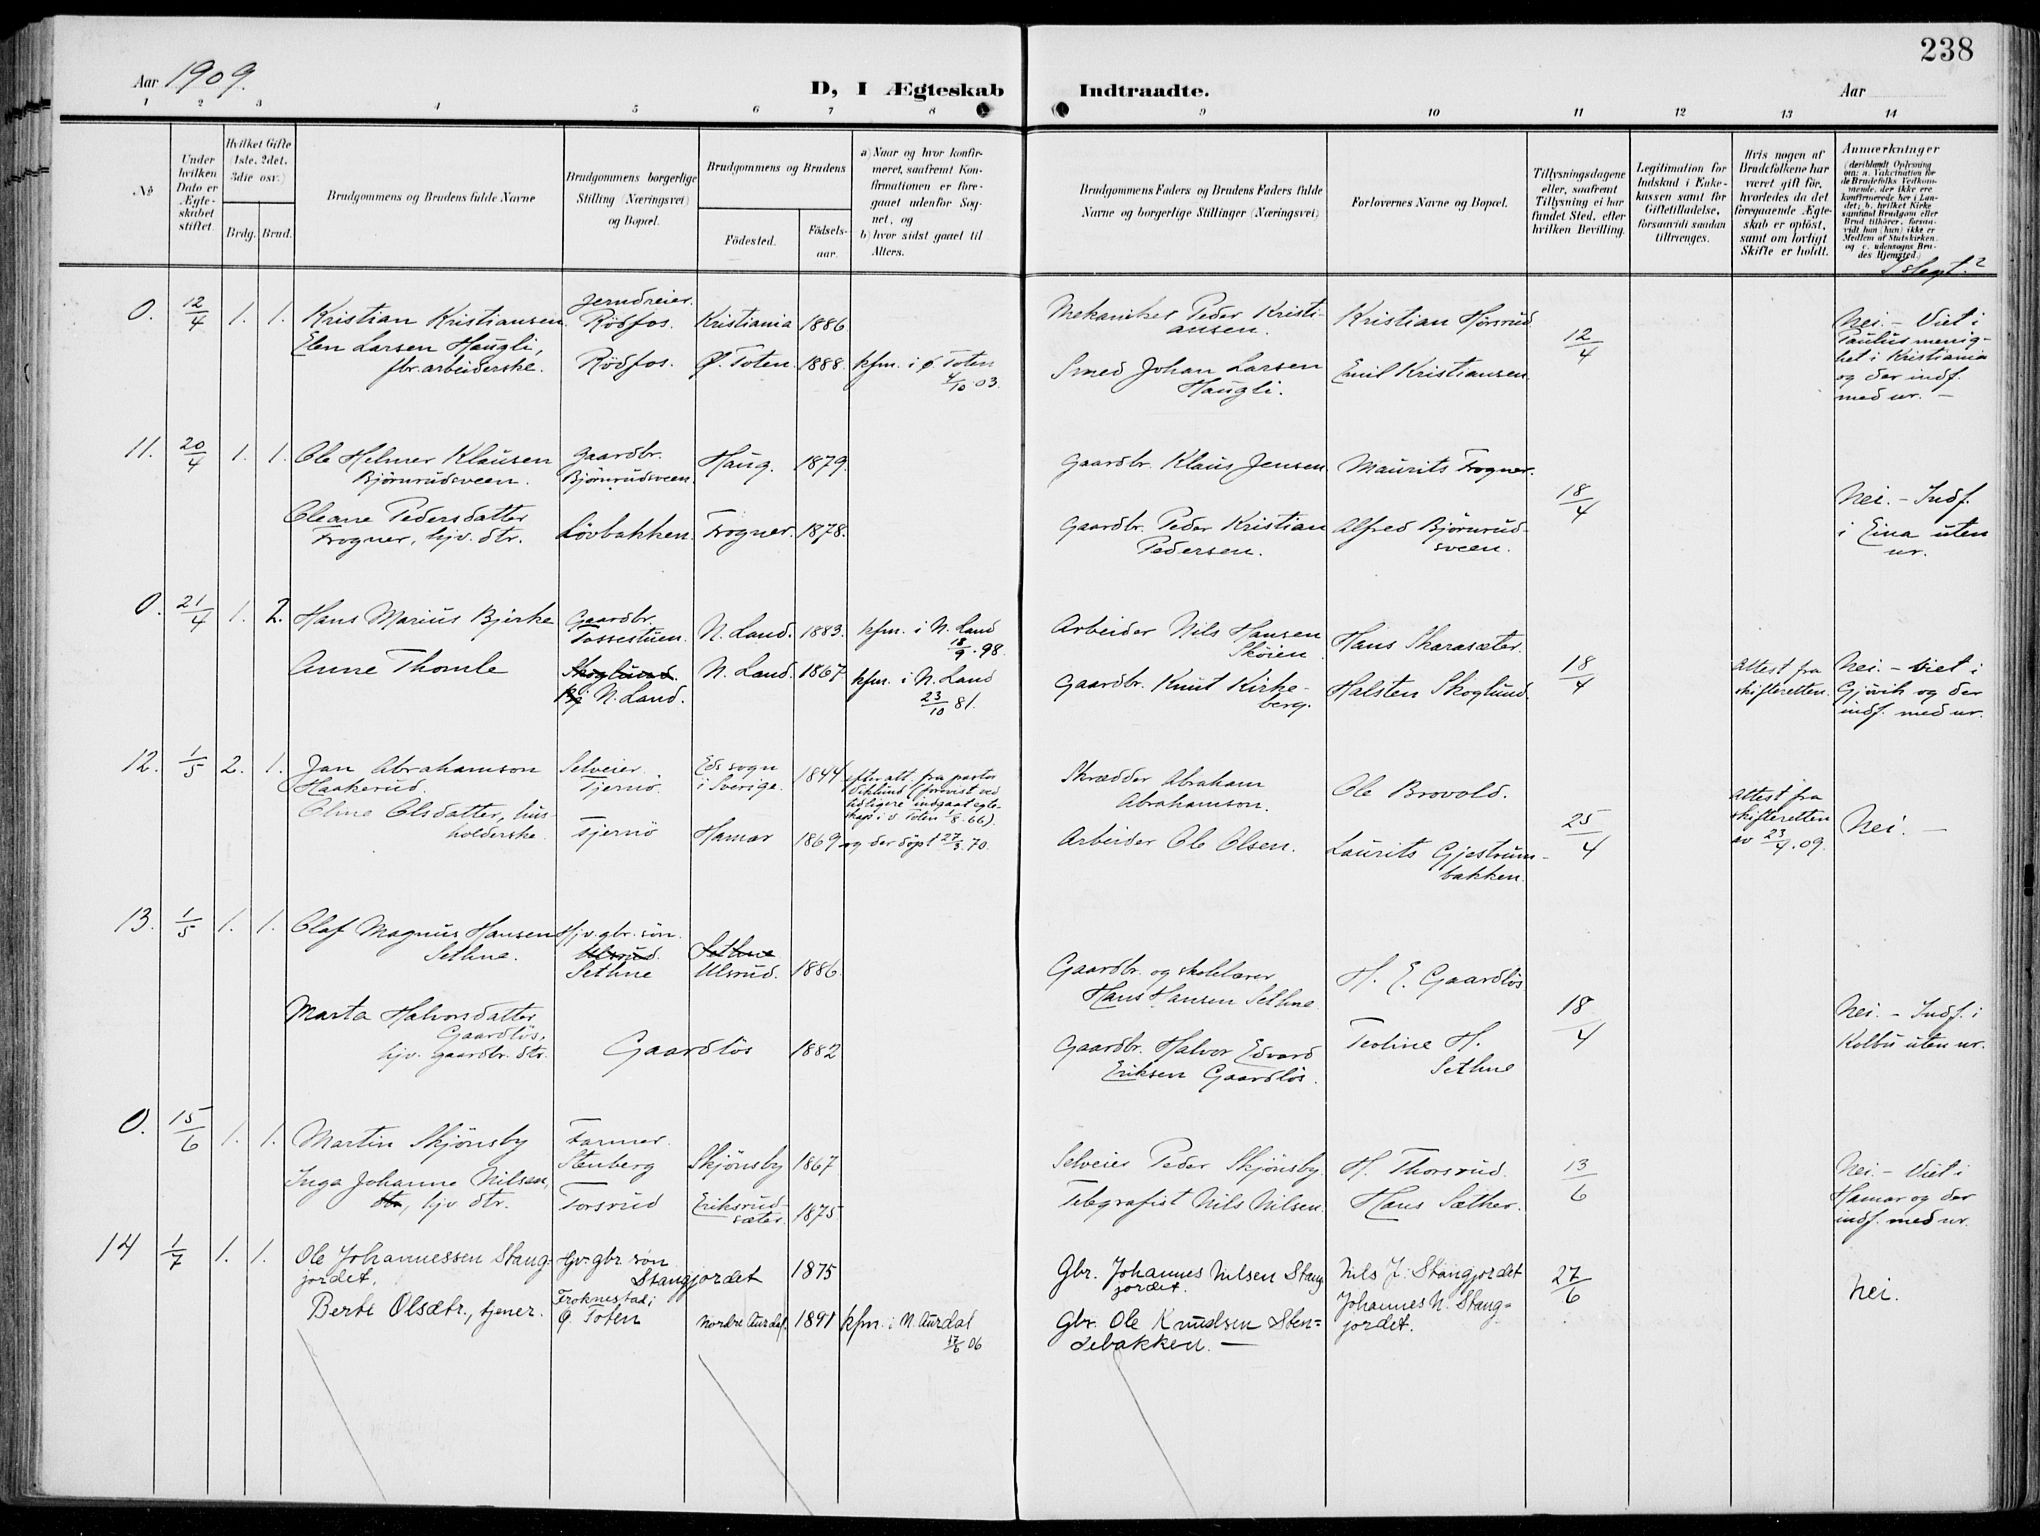 238
Aar 1909.
D, I Ægteskab Indtraadte.
Aar
1 2 3 4 5 6 7 8 9 10 11 12 13 14
No
Under hvilken Dato er Ægteskabet stiftet.
Hvilket Gifte 1ste, 2det, 3die osv.)
Brdg. Brud.
Brudgommens og Brudens fulde Navne
Brudgommens borgerlige Stilling (Næringsvei) og Bopæl.
Brudgommens og Brudens
Födested.
Födselsaar.
a) Naar og hvor konfirmeret, saafremt Konfirmationen er foregaaet udenfor Sognet, og
b) hvor sidst gaaet til Alters.
Brudgommens Faders og Brudens Faders fulde Navne og borgerlige Stillinger (Næringsvei)
Forlovernes Navne og Bopæl.
Tillysningsdagene eller, saafremt Tillysning ei har fundet Sted, efter hvilken Bevilling.
Legitimation for Indskud i Enkekassen samt for Giftetilladelse, forsaavidt saadan tiltrænges.
Hvis nogen af Brudefolkene har været gift för, hvorledes da det foregaaende Ægteskab er oplöst, samt om lovligt Skifte er holdt.
Anmærkninger
(deriblandt Oplysning om: a. Vakcination for de Brudefolks Vedkommende, der ikke ere konfirmerede her i Landet; b. hvilket Kirkesamfund Brudgom eller Brud tilhörer, forsaavidt han (hun) ikke er Medlem af Statskirken, og c. udensogns Brudes Hjemsted.)
I slegt?
0. 12/4 1. 1. Kristian Kristiansen Jerndreier. Rödfos. Kristiania 1886
Elen Larsen Haugli, fbr. arbeiderske. Rödfos. Ø. Toten. 1888. kfm. i Ø. Toten 4/10 03.
Mekaniker Peder Kristiansen. Kristian Hørsrud
Smed Johan Larsen Haugli. Emil Kristiansen.
12/4
Nei. – Viet i Paulus menighet i Kristiania og der indf. med nr. –
11. 20/4 1. 1. Ole Helmer Klausen Bjørnrudsveen. Gaardbr. Bjørnrudsveen. Haug. 1879.
Oleane Pedersdatter Frogner, hjv. dtr. Løvbakken. Frogner. 1878.
Gaardbr. Klaus Jensen. Maurits Frogner.
Gaardbr. Peder Kristian Pedersen. Alfred Bjørnrudsveen.
18/4
Nei. – Indf. i Eina uten nr.
0. 21/4 1. 2. Hans Marius Bjerke Gaardbr. Tossestuen. N. Land. 1883. kfm. i N. Land 18/9 98.
Anne Thomle Skoglund N. Land. N. Land. 1867 kfm. i N. Land 23/10 81.
Arbeider Nils Hansen Skøien. Hans Skarasæter.
Gaardbr. Knut Kirkeberg. Halsten Skoglund.
18/4
Attest fra skifteretten.
Nei. – Viet i Gjøvik og der indf. med nr.
12. 1/5 2. 1. Jan Abrahamson Haakerud. Selveier. Tjernö. Eds sogn i Sverige. 1844 efter att. fra pastor Viklund (forevist ved tidligere indgaat egteskap i v. Toten 1/8 66).
Oline Olsdatter, husholderske. Tjernö Hamar 1869 og der döpt 27/3 70.
Skrædder Abraham Abrahamson. Ole Brovold.
Arbeider Ole Olsen. Laurits Gjestrumbakken.
25/4
Attest fra skifteretten av 23/4 09.
Nei. –
13. 1/5 1. 1. Olaf Magnus Hansen Sethne. Hjv. gbr. søn. Ulsrud. Sethne Sethne Ulsrud. 1886.
Marta Halvorsdatter Gaardløs, hjv. gaardbr. dtr. Gaardløs 1882
Gaardbr. og skolelærer Hans Hansen Sethne. H. E. Gaardløs
Gaardbr. Halvor Edvard Eriksen Gaardløs. Teoline H. Sethne
18/4
Nei. – Indf. i Kolbu uten nr.
0. 15/6 1. 1. Martin Skjønsby Farmer. Stenberg Skjønsby 1867
Inga Johanne Nilsen, dtr, hjv dtr. Torsrud Eriksrudsæter. 1875
Selveier Peder Skjønsby. H. Thorsrud.
Telegrafist Nils Nilsen. Hans Sæther.
13/6
Nei. – Viet i Hamar og der indf. med nr.
14 1/7 1. 1. Ole Johannessen Stangjordet, Hjv. gbr. søn Stangjordet 1875
Berte Olsdtr., tjener. Froknestad; Ø. Toten Nordre Aurdal. 1891 kfm. i N. Aurdal 17/6 06
Gbr. Johannes Nilsen Stangjordet. Nils J. Stangjordet
Gbr. Ole Knudsen Stendebakken. – Johannes N. Stangjordet.
27/6
Nei.